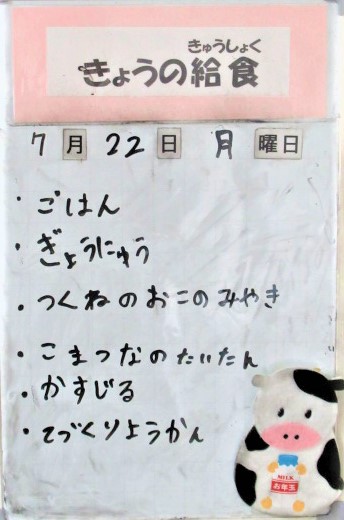 きゅうしょく
きょうの給食
7月22日月曜日
・ごはん
・ぎょうにゅう
・つくねのおこのみやき
・こまつなのたいたん
・かすじる
・てづくりようかん
MILK
お年玉